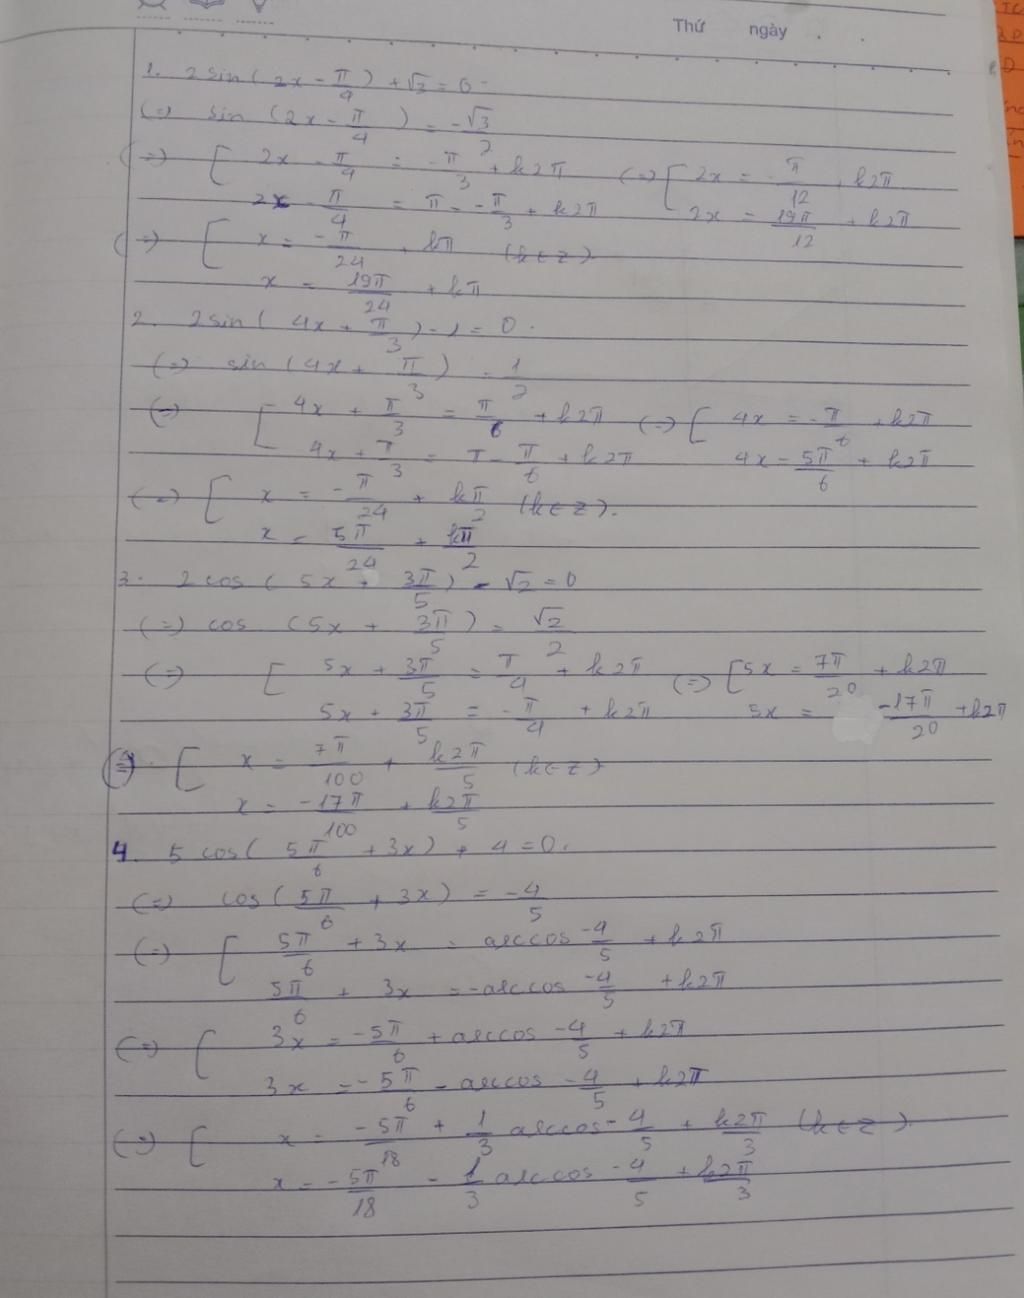 Thứ ngày . .
1. 2 sin( 2x - π/4 ) + √3 = 0.
(=) sin (2x - π/4 ) = -√3/2
(=) [ 2x - π/4 = -π/3 + k2π (=) [ 2x = -π/12 + k2π
2x - π/4 = π - -π/3 + k2π 2x = 19π/12 + k2π
(=) [ x = -π/24 + kπ (k∈Z)
x = 19π/24 + kπ
2. 2sin( 4x + π/3 ) - 1 = 0.
(=) sin (4x + π/3 ) = 1/2
(=) [ 4x + π/3 = π/6 + k2π (=) [ 4x = -π/6 + k2π
4x + π/3 = π - π/6 + k2π 4x = 5π/6 + k2π
(=) [ x = -π/24 + kπ/2 (k∈Z).
x = 5π/24 + kπ/2
3. 2 cos ( 5x + 3π/5 ) - √2 = 0
(=) cos (5x + 3π/5 ) = √2/2
(=) [ 5x + 3π/5 = π/4 + k2π (=) [ 5x = 7π/20 + k2π
5x + 3π/5 = -π/4 + k2π 5x = -17π/20 + k2π
(=) [ x = 7π/100 + k2π/5 (k∈Z)
x = -17π/100 + k2π/5
4. 5 cos( 5π/6 + 3x) + 4 = 0.
(=) cos ( 5π/6 + 3x) = -4/5
(=) [ 5π/6 + 3x = arccos -4/5 + k2π
5π/6 + 3x = -arccos -4/5 + k2π
(=) [ 3x = -5π/6 + arccos -4/5 + k2π
3x = -5π/6 - arccos -4/5 + k2π
(=) [ x = -5π/18 + 1/3 arccos -4/5 + k2π/3 (k∈Z).
x = -5π/18 - 1/3 arccos -4/5 + k2π/3